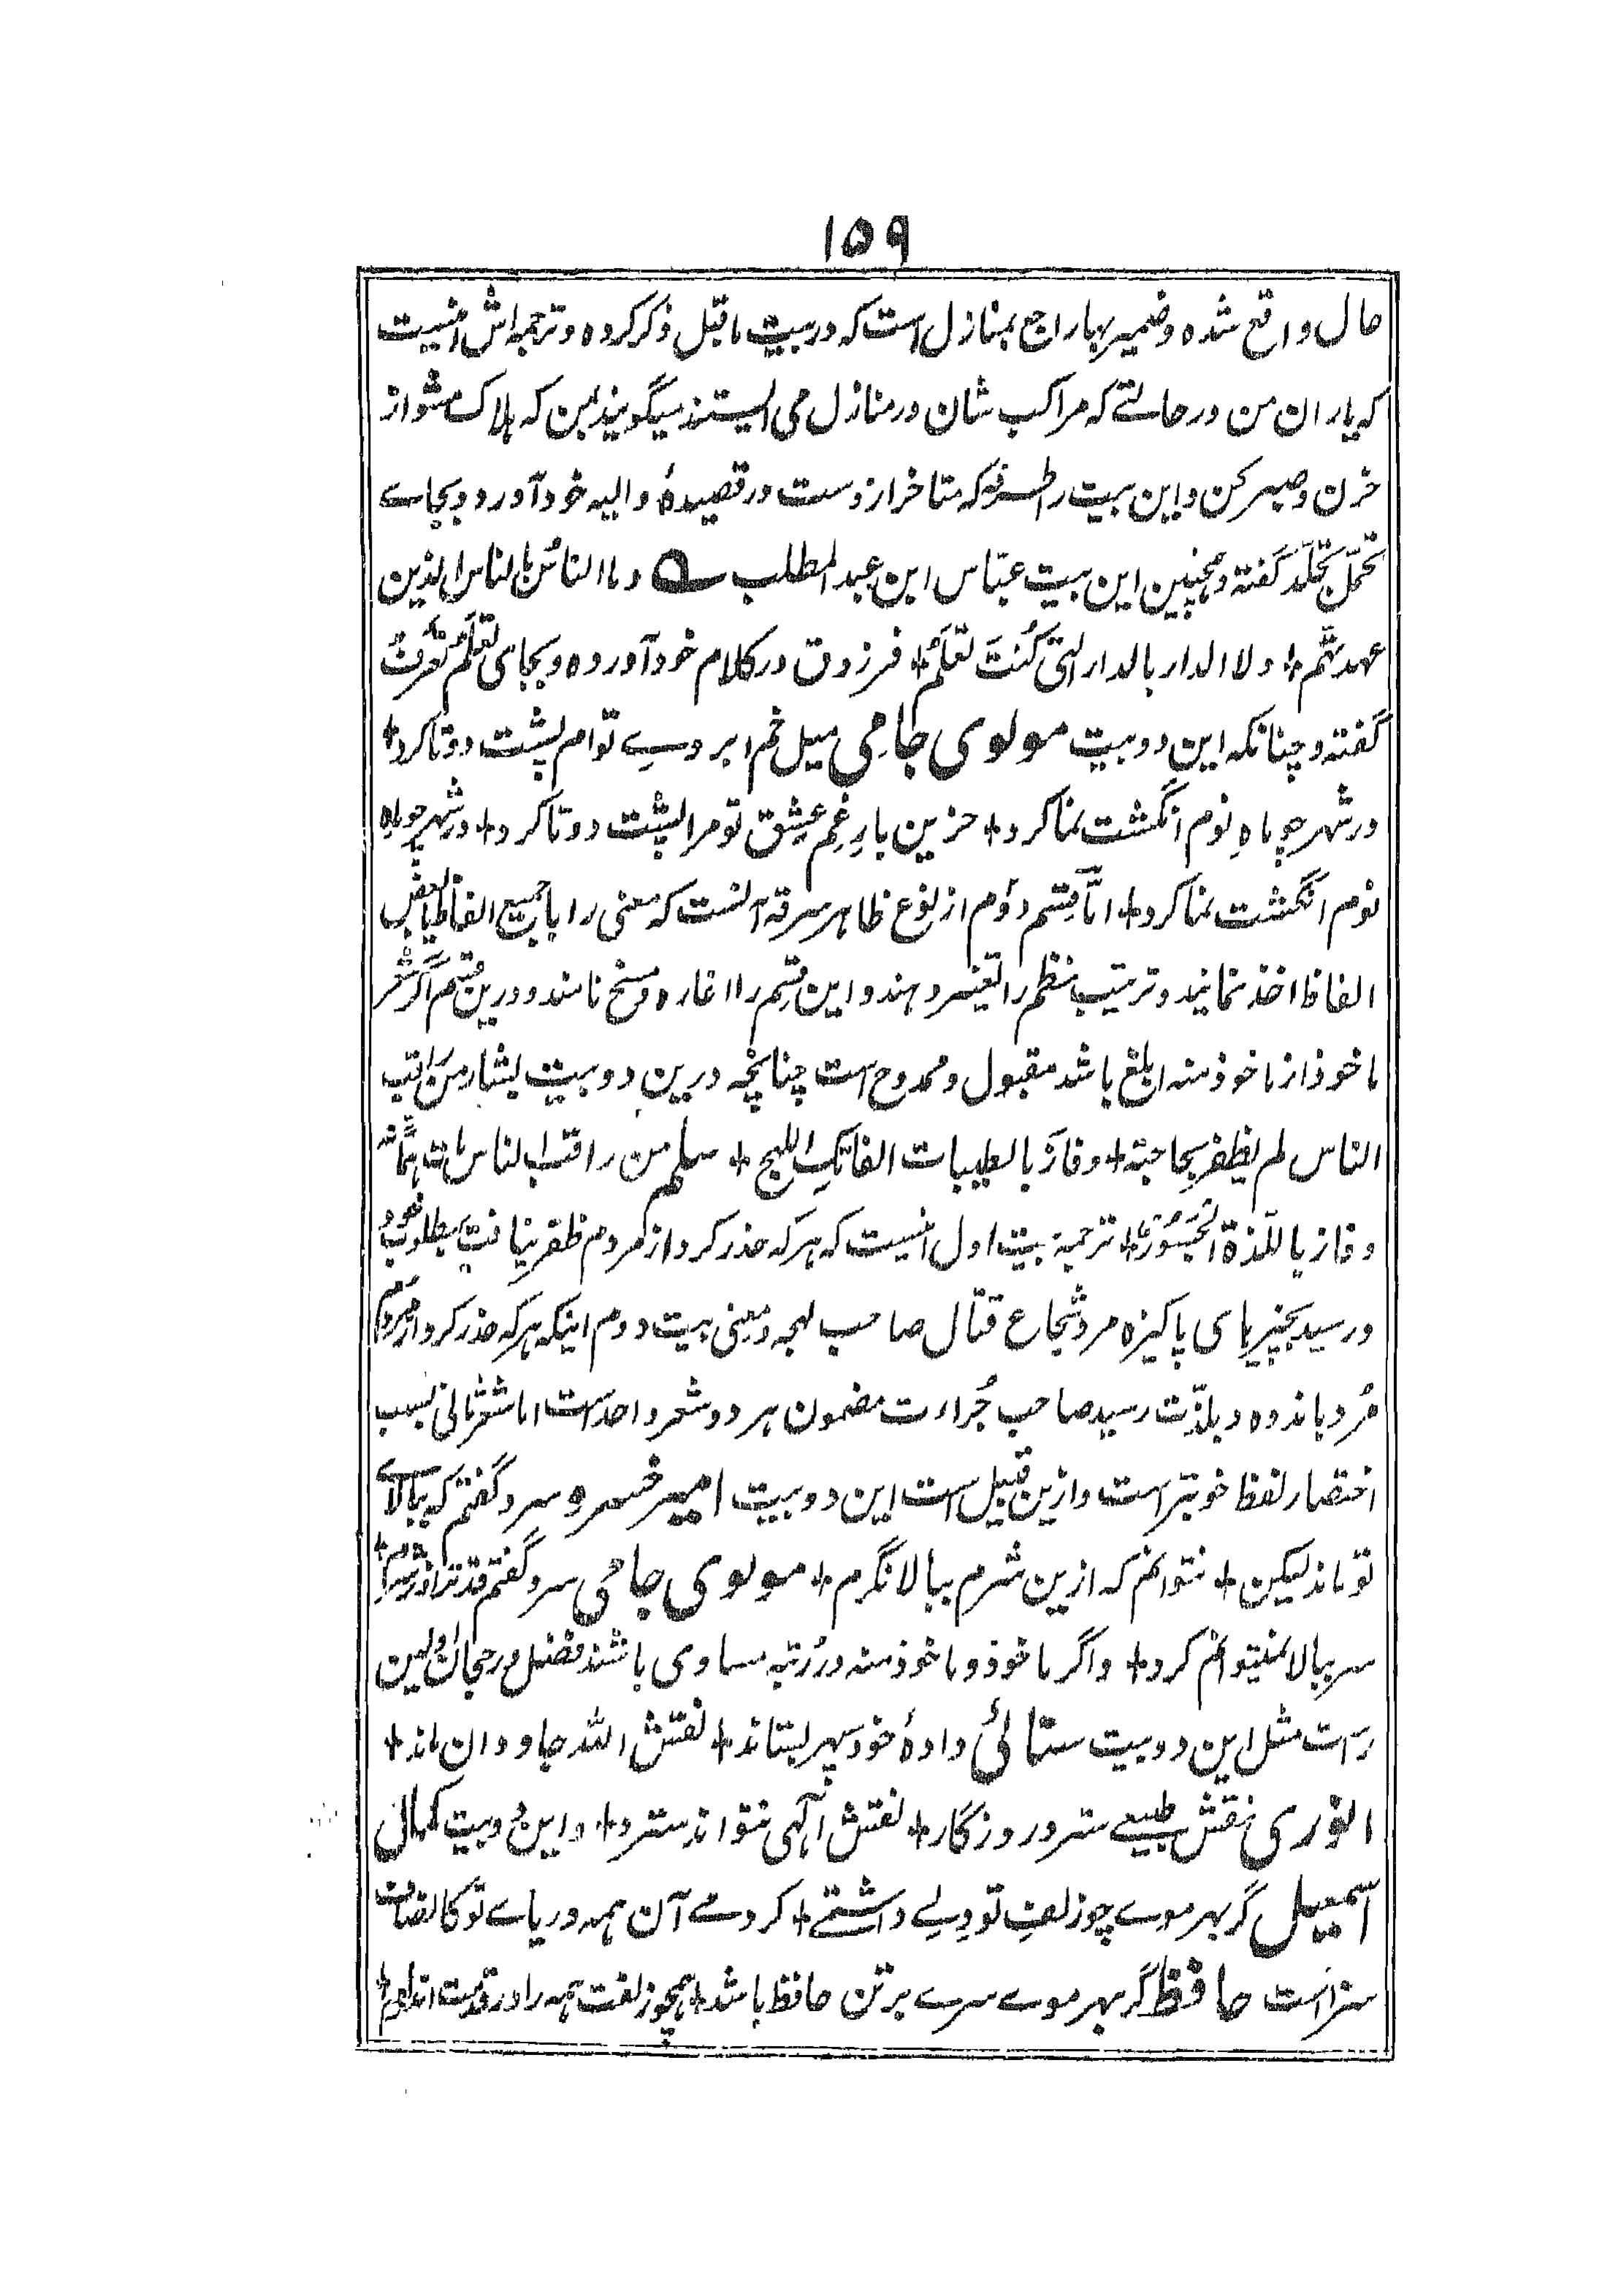 ۱۵۹
حال واقع شده وضمیر بها راجع بمنازل است که در بیت ماقبل ذکر کرده و ترجمه اش اینست
که یاران من در حالتے که مراکب شان در منازل می ایستند میگویند بمن که هلاک مشو از
حزن و صبر کن و این بیت را طرفه که متاخر ازوست در قصیدهٔ دالیه خود آورد و بجاے
تحمّل تجلّد گفته و همچنین این بیت عبّاس ابن عبد المطلب ؎ وما الناسُ بالناس الذین
عهدتّهم + ولا الدار بالدار التی کُنتَ تَعلَمُ + فرزدق در کلام خود آورده و بجای تَعلَم تَعرِف
گفته و چنانکه این دو بیت مولوی جامی میل خم ابروےِ توام پشت دوتا کرد +
در شهر چو ماهِ نوم انگشت نما کرد + حزین بارِ غمِ عشق تو مرا پشت دوتا کرد + در شهر چو ماهِ
نوم انگشت نما کرد + امّا قسم دوُم از نوع ظاهر سرقه آنست که معنی را با جمیع الفاظ یا بعض
الفاظ اخذ نمایند و ترتیب نظم را تغییر دهند و این قسم را اغاره و مسخ نامند و درین قسم اگر شعر
ماخوذ از ماخوذ منه ابلغ باشد مقبول و ممدوح است چنانچه درین دو بیت بشار من راقب
الناس لم یظفر بحاجته + وفازَ بالطیبات الفاتک اللهج + سلم من راقب الناس مات همًّا +
وفاز باللّذة الجَسُورُ + ترجمهٔ بیت اول اینست که هرکه حذر کرد از مردم ظفر نیافت بمطلوب خود
و رسید بچیزهای پاکیزه مرد شجاع قتّال صاحب لهجه و معنی بیت دوم اینکه هرکه حذر کرد از مردم
مُرد باندوه و بلذّت رسید صاحب جُراءت مضمون هر دو شعر واحد است اما شعر ثانی بسبب
اختصار لفظ خوبتر است و ازین قبیل است این دو بیت امیر خسرو سرو گفتم که ببالاے
تو ماند لیکن + نتوانم که ازین شرم ببالا نگرم + مولوی جامی سرو گفتم قد ترا از شرم +
سر ببالا نمیتوانم کرد + و اگر ماخوذ و ماخوذ منه در رُتبه مساوی باشند فضل و رجحان اولین
راست مثل این دو بیت سنائی دادهٔ خود سپهر بستاند + نقش اللّٰه جاودان ماند +
انوری نقش طبیعے سترد روزگار + نقش آلٰهی نتواند سترد + و این دو بیت کمال
اسمعیل گر بهر موے چو زلفِ تو دِلے داشتمے + کردمے آن همه در پاے تو کانصاف
سزاست حافظ گر بهر موے سرے بر تن حافظ باشد + همچو زلفت همه را در قدمت اندازم +